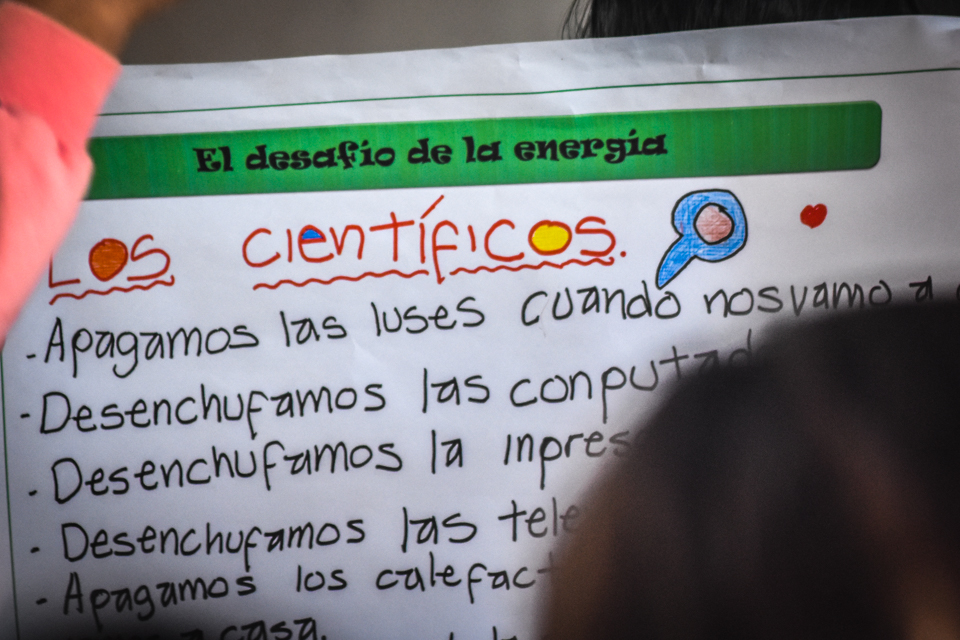 El desafio de la energía
Los científicos.
- Apagamos las luses cuando nos vamo a
- Desenchufamos las
- Desenchufamos la
- Desenchufamos las
- Apagamos los
a casa.